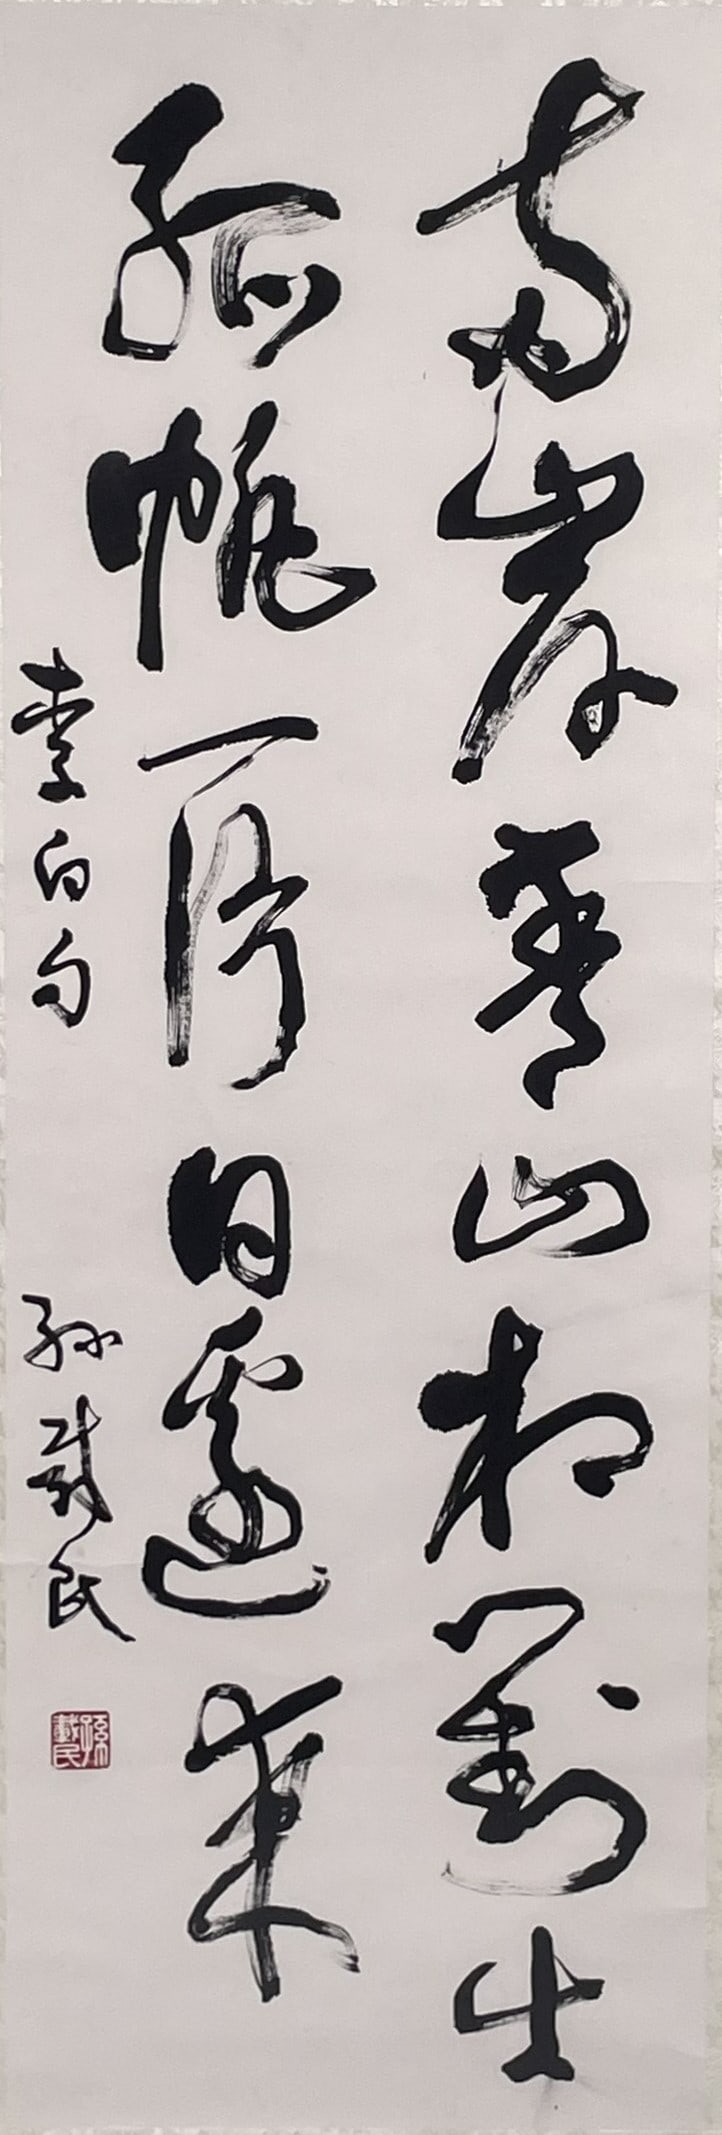 两岸青山相对出
孤帆一片日边来
李白句
孙戴民
孫戴民